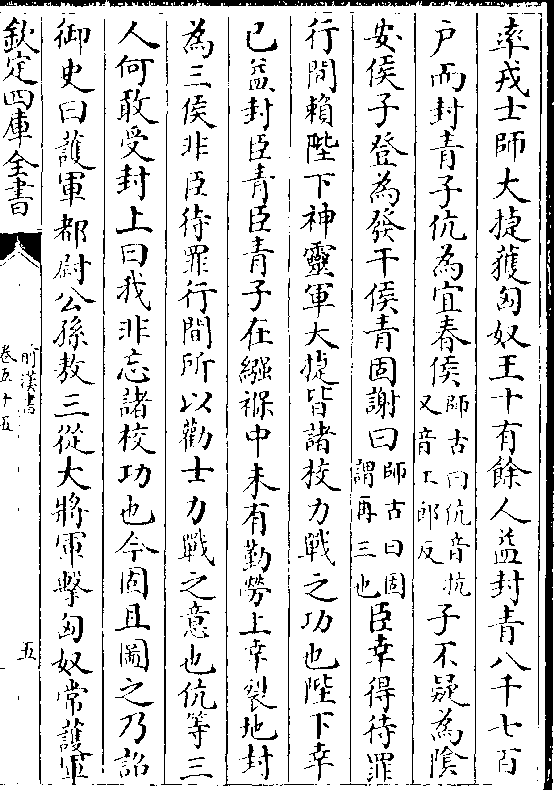 率戎士師大捷獲匈奴王十有餘人益封青八千七百
户而封青子伉為宜春侯師古曰伉音抗又音工郎反子不疑為隂
安侯子登為發干侯青固謝曰師古曰固謂再三也臣幸得待罪
行間賴陛下神靈軍大捷皆諸校力戰之功也陛下幸
已益封臣青臣青子在繈褓中未有勤勞上幸裂地封
為三侯非臣待罪行間所以勸士力戰之意也伉等三
人何敢受封上曰我非忘諸校功也今固且圖之乃詔
御史曰䕶軍都尉公孫敖三從大將軍擊匈奴常䕶軍
欽定四庫全書
前漢書
卷五十五
五